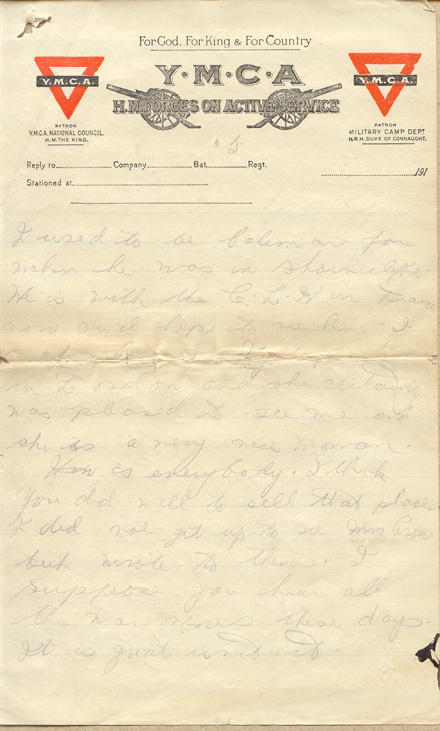 For God, For King & For Country
Y·M·C·A
H.M. FORCES ON ACTIVE SERVICE
Y.M.C.A.
PATRON
Y.M.C.A. NATIONAL COUNCIL.
H.M. THE KING.
Y.M.C.A.
PATRON
MILITARY CAMP DEPT
H.R.H. DUKE OF CONNAUGHT.
5
Reply to Company Bat. Regt.
Stationed at
191
I used to be for
when he was in
He is with the C. L. H in France
now and hope to him. I
in London and she certainly
was pleased to see me and
she is a very nice woman.
How is everybody. I think
you did well to sell that place
I did not get up to see Mrs
but wrote to them. I
suppose you hear all
the war news these days.
It is great isn't it.